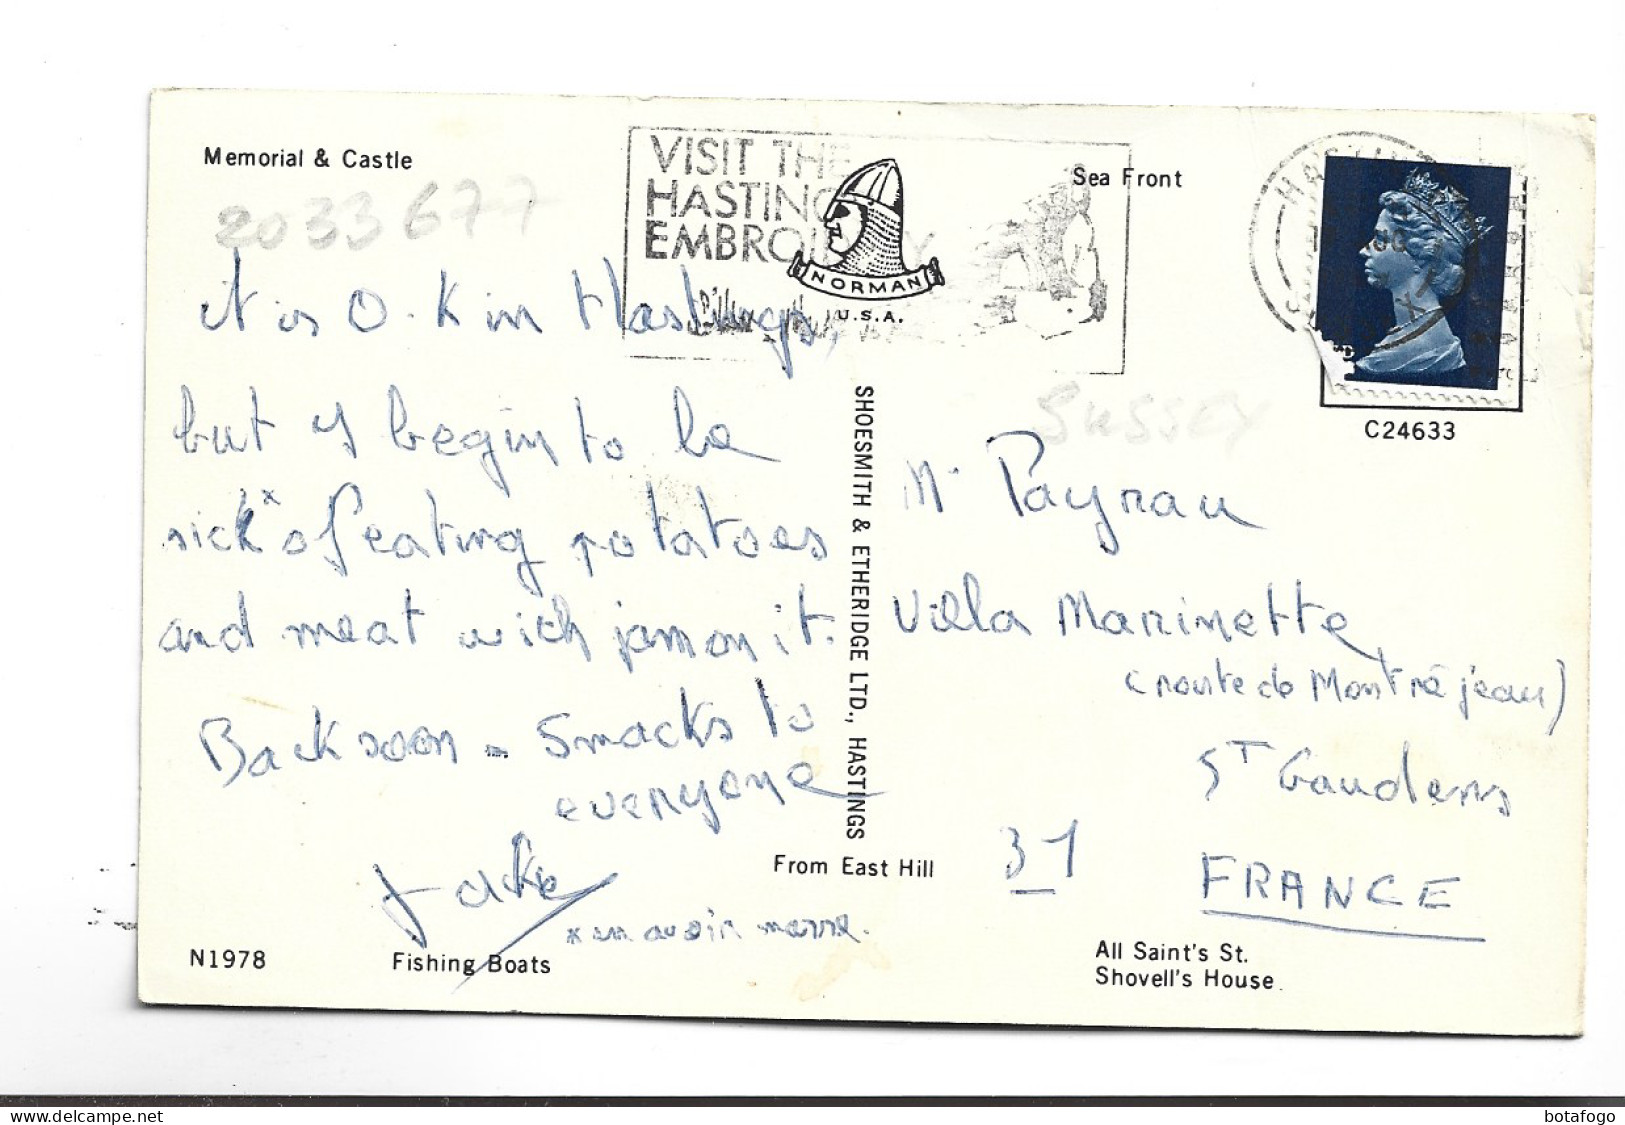 Memorial & Castle
2033677
VISIT THE
HASTING
EMBROI
NORMAN
U.S.A.
Sea Front
HASTIN
SUSSEX
C24633
it is O.K in Hastings,
but I begin to be
sick* of eating potatoes
and meat wich jam on it.
Back soon - Smacks to
everyone
* en avoir marre.
N1978
Fishing Boats
SHOESMITH & ETHERIDGE LTD., HASTINGS
From East Hill
Mr Payrau
Villa Marinette
(route de Montréjeau)
ST Gaudens
31
FRANCE
All Saint's St.
Shovell's House
botafogo